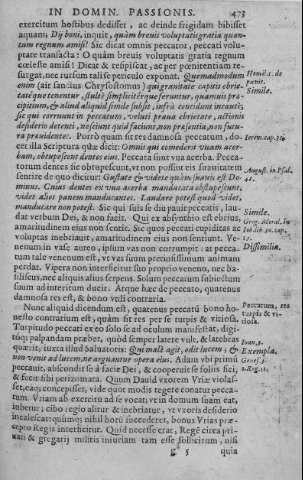 IN DOMIN. PASSIONIS. 473
exercitum hostibus dedisset, ac deinde frigidam bibisset
aquam: Dij boni, inquit, quàm breuis voluptatis gratia quan-
tum regnum amisi! Sic dicat omnis peccator, peccati volup-
tate transacta: O quàm breuis voluptatis gratia regnum
cœleste amisi! Dicat & respiscat, ac per pœnitentiam re-
surgat, nec rursum talise periculo exponat. Quemadmodum
enim (ait sanctus Chrysostomus) qui grauitate capitis obru-
tus
peccati.
Simile.
cipitium, & aliud aliquid simile subsit, infrà concidunt incauti;
sic qui corruunt in peccatum, veluti præua ebrietate, actionis
desiderio detenti, nesciunt quid faciunt, non præsentia, non futu-
ra prouidentes. Porrò quam sit res damnosa peccatum, do-
cet illa Scriptura quæ dicit: Omnis qui comederit vuam acer-
bam, obstupescent dentes eius. Peccata sunt vua acerba. Pecca-
torum dentes sic obstupescunt, vt non possint eis suauitatem
sentire de quo dicitur: Gustate & videte quàm suauis est Do-
minus. Cuius dentes ex vua acerba manducata obstupescunt,
videt alios panem manducantes. Laudare potest quod videt,
manducare non potest. Sic qui suis se diu paniit peccatis, lau-
dat verbum Dei, & non facit. Qui ex absynthio est ebrius,
amaritudinem eius non sentit. Sic quos peccati cupiditas ac
voluptas inebriauit, amaritudinem eius non sentiunt. Ve-
nenum in vase aureo, ipsum vas non corrumpit: at pecca-
tum tale venenum est, vt vas suum preciosissimum animam
perdat. Vipera non interficitur suo proprio veneno, nec ba-
siliscus, nec aliquis alius serpens. Solum peccatum subiectum
suum ad interitum ducit. Atque hæc de peccato, quatenus
damnosa res est, & bono vtili contraria.
Nunc aliquid dicendum est, quatenus peccatū bono ho-
nesto contrarium est, quàm sit res per se turpis & vitiosa.
Turpitudo peccati ex eo solo se ad oculum manifestat, digi-
tisque palpandam præbet, quòd semper latere vult, & latebras
quærit, iuxta illud Saluatoris: Qui malè agit, odit lucem; &
non venit ad lucem, ne arguantur opera eius. Adam vbi primùm
peccauit, abscondit se à facie Dei, & cooperuit se folijs fici,
& fecit sibi perizomata. Quum Dauid vxorem Vriæ violas-
set, eaque concepisset, vide quot modis tegere conatur pecca-
tum. Vriam ab exercitu ad se vocat: vt in domum suam eat,
iubetur; cibo regio alitur & inebriatur, vt vxoris desiderio
incalescat: quum que nihil horū succederet, bonus Vrias præ-
cepto Regis interficitur. Quid necesse erat, Regē circa pri-
uati & gregarij militis iniuriam tam esse sollicitum, nisi
g 5 quia
Ierem.cap.31.
August. in Psal.
Simile.
Dissimilia.
Peccatum, res
turpis & vi-
tiosa.
Ioan.3.
Exempla.
Genes.3.
2.Reg.11.